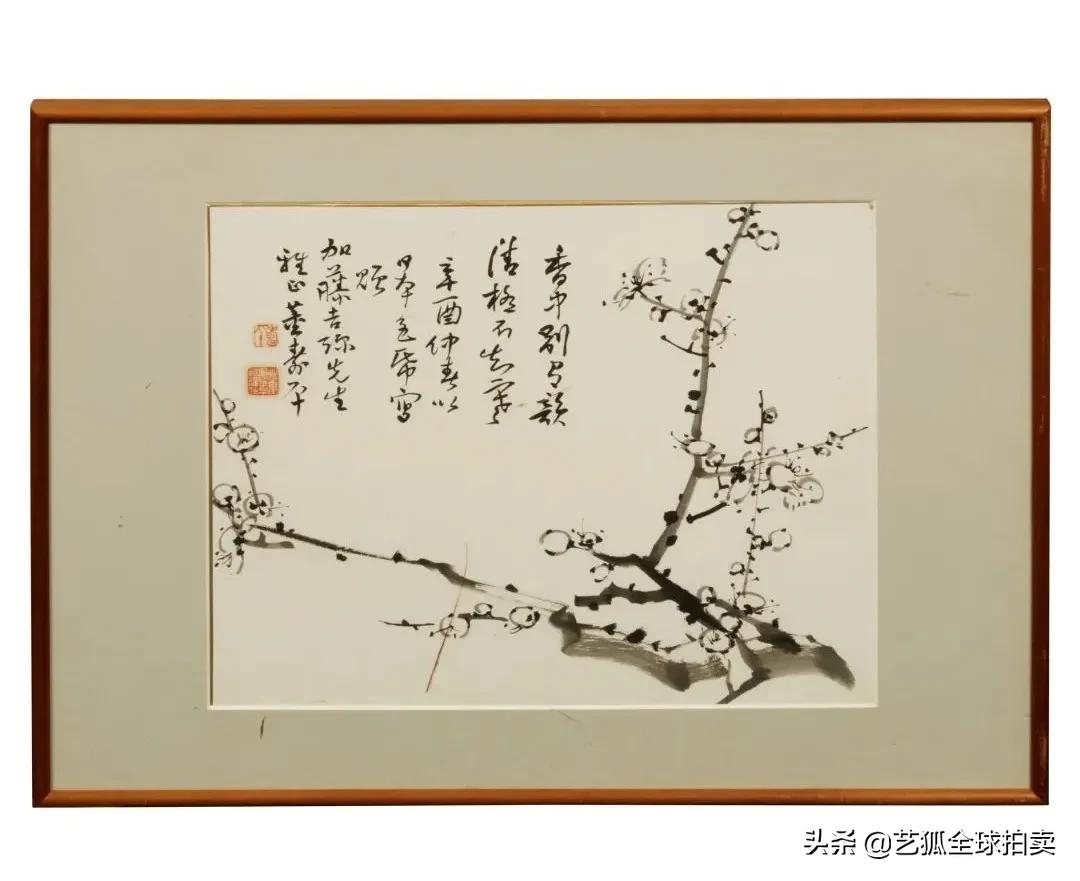 香中别有韻
清極不知寒
辛酉仲春以
日本色紙寫
加藤吉弥先生
雅正 董寿平
头条 @艺狐全球拍卖